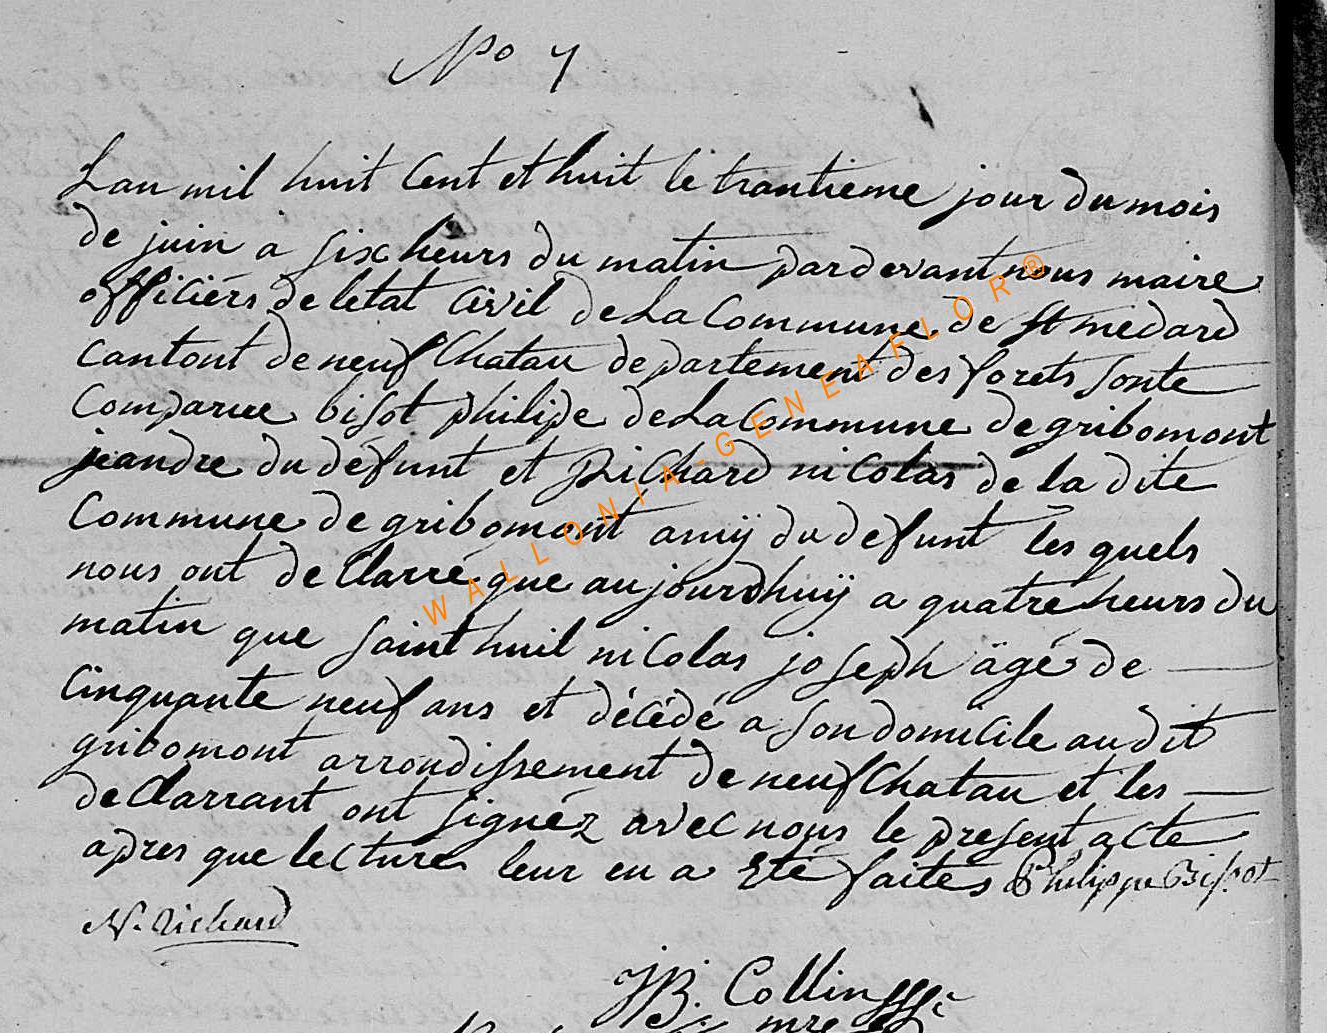 No 7
Lan mil huit Cent et huit le trantieme jour du mois
de juin a six heurs du matin par devant nous maire
officiérs de letat Civil de La Commune de St medard
Cantont de neuf Chatau departement des forets sonte
Comparue bisot philipe de La Commune de gribomont
jeandre du défunt et Richard nicolas de la dite
Commune de gribomont amÿ du defunt les quels
nous ont de Clarré que aujourdhuÿ a quatre heurs du
matin que saint huil nicolas joseph âgé de
Cinquante neuf ans et décédé a son domicile audit
gribomont arrondissement de neuf Chatau et les
de Clarrant ont signéz avec nous le present acte
apres que lecture leur en a Eté faites Philippe Bissot
N. Richard
JB. Collin
mre
WALLONIA-GENEAFLOR®